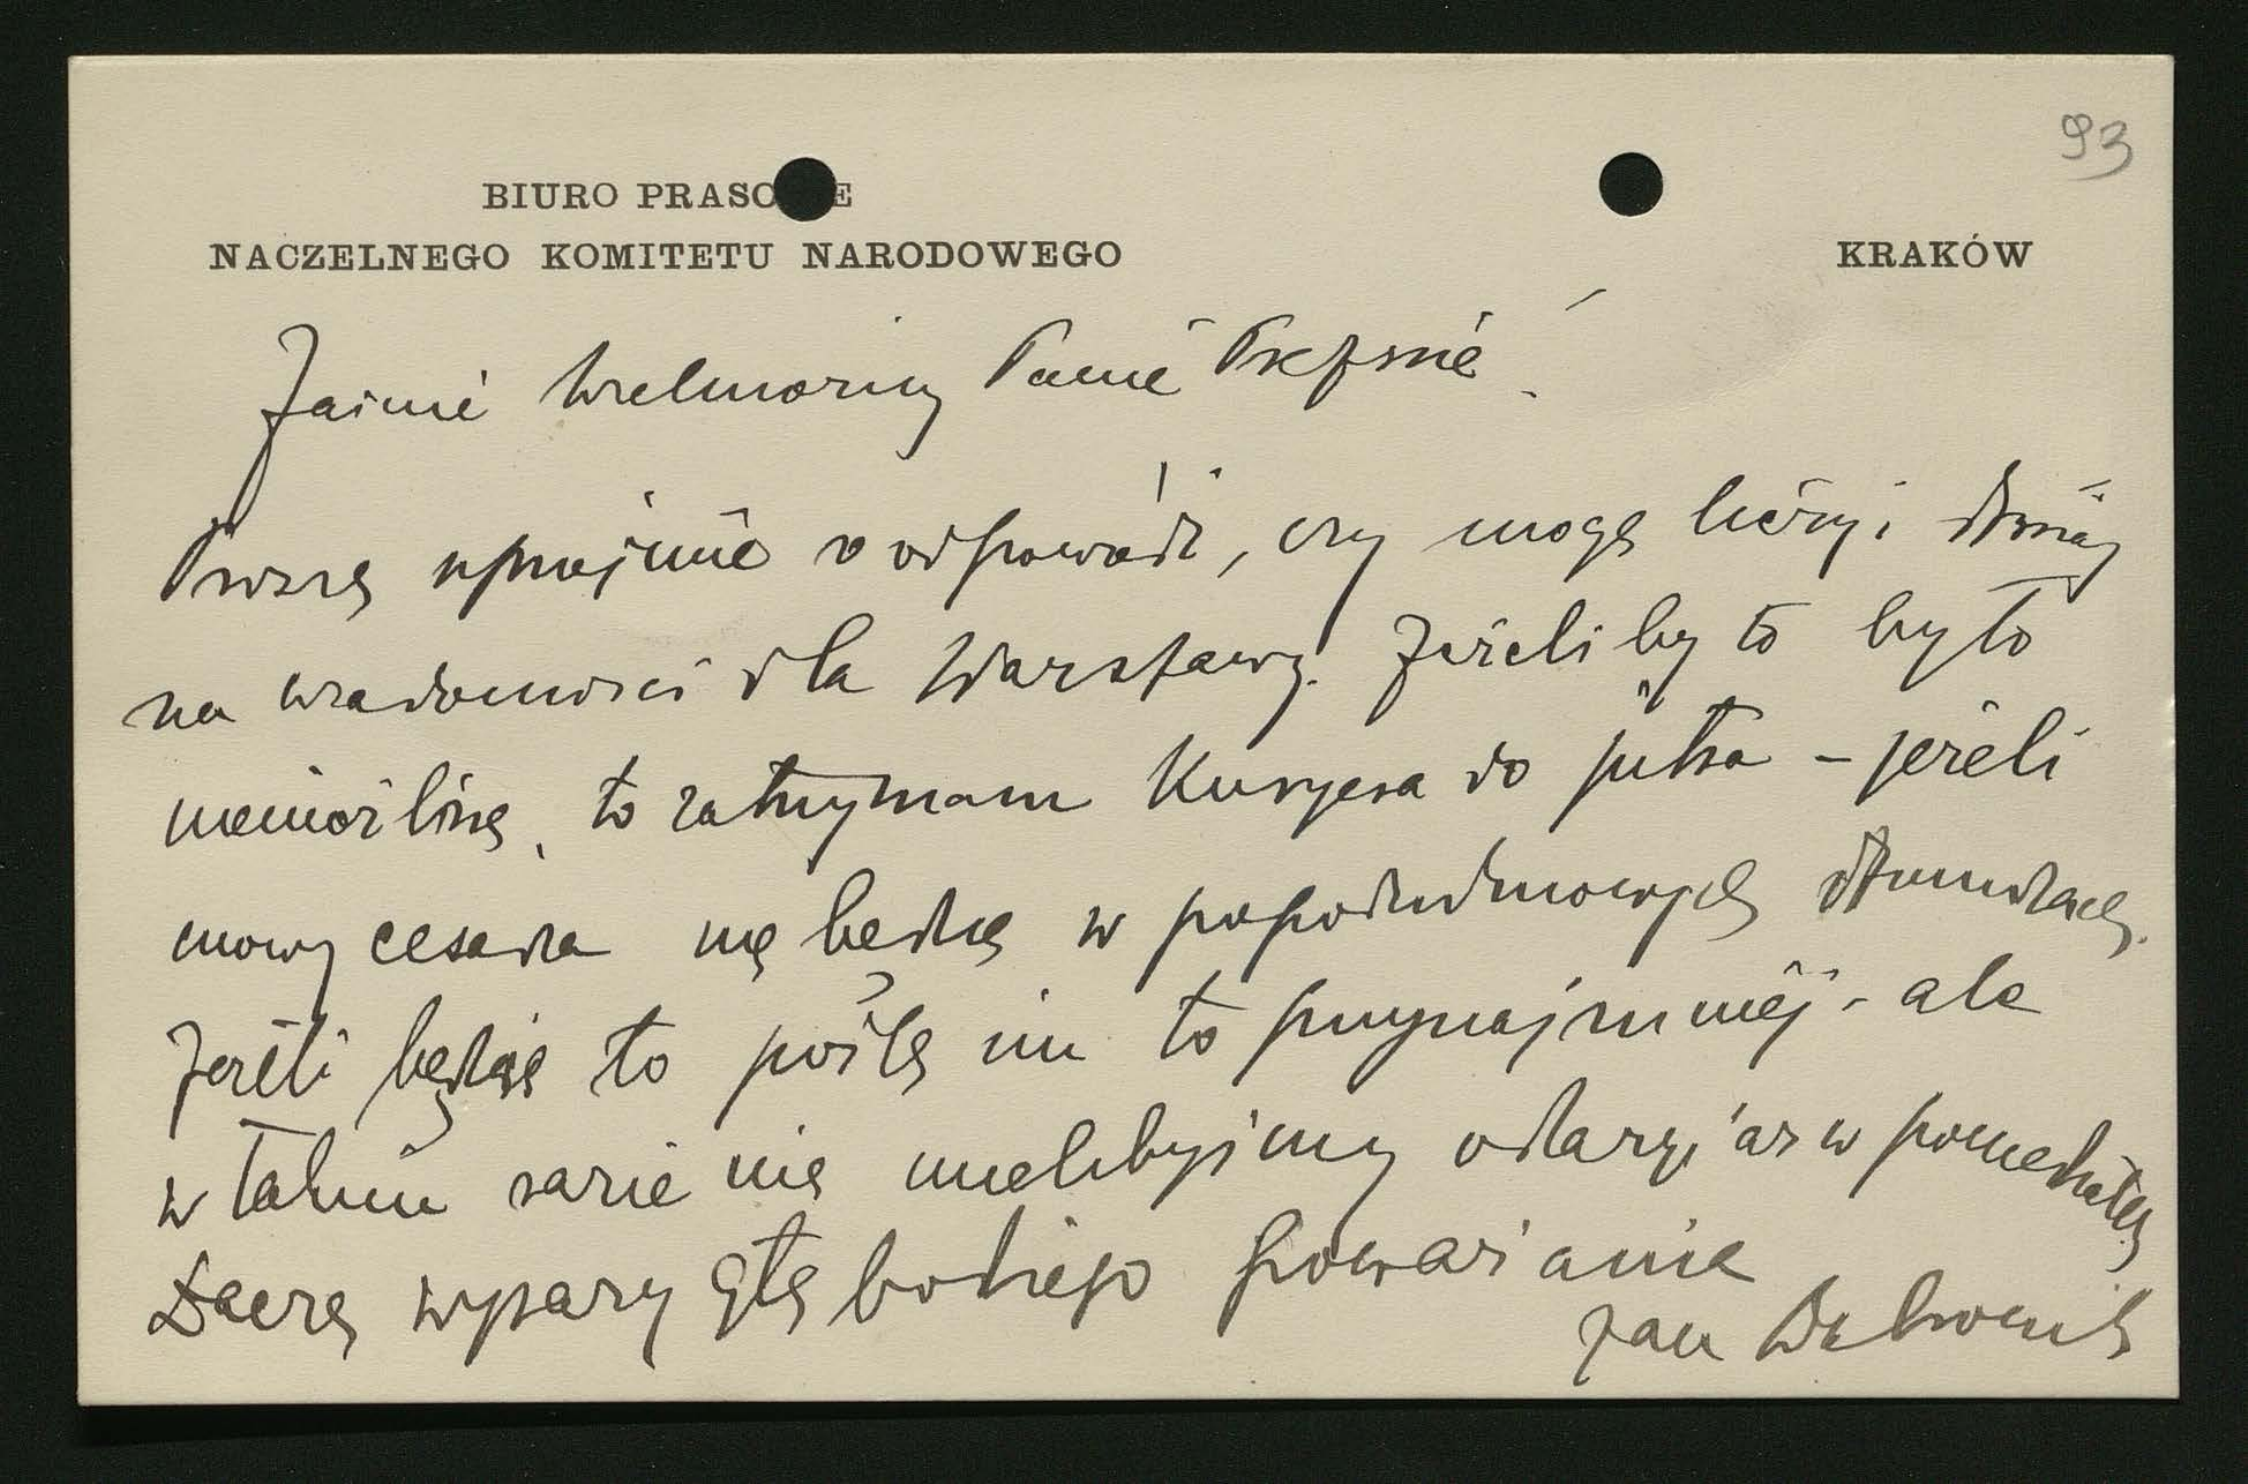 93
BIURO PRASOWE
NACZELNEGO KOMITETU NARODOWEGO KRAKÓW
Jaśnie Wielmożny Panie Prezesie!
Proszę uprzejmie o odpowiedź, czy mogę liczyć dzisiaj
na wiadomości dla Warszawy. Jeżeliby to było
niemożliwe, to zatrzymam Kuryera do jutra – jeżeli
mowy cesarza nie będzie w popołudniowych dziennikach.
Jeżeli będzie to poślę im to przynajmniej – ale
w takim razie nie mielibyśmy okazyi aż w poniedziałek
Łączę wyrazy głębokiego poważania
Jan Dąbrowski